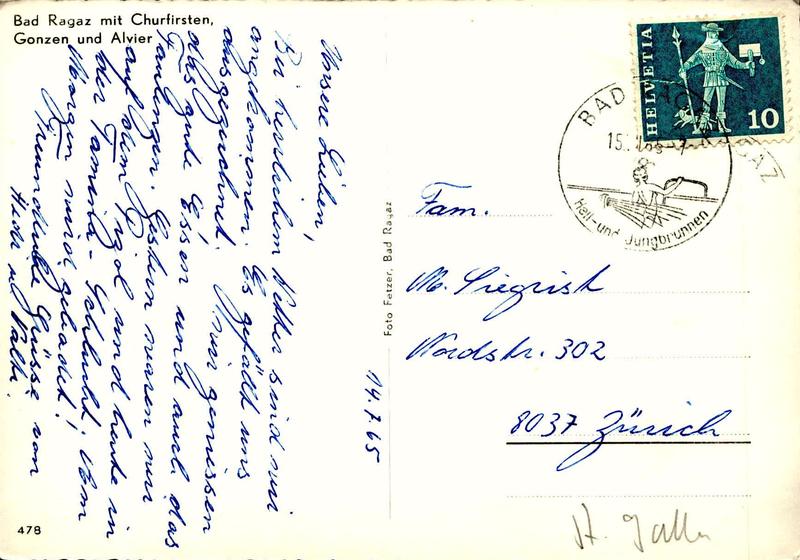 Bad Ragaz mit Churfirsten,
Gonzen und Alvier
Unsere Lieben,
Bei herrlichem Wetter sind wir
angekommen. Es gefällt uns
ausgezeichnet. Wir geniessen
das gute Essen und auch das
Faulenzen. Gestern waren wir
auf dem Pizol und heute in
der Tamina-Schlucht. Vom
Morgen wird gebadet!
Freundliche Grüsse von
Heidi u. Walti.
14.7.65
478
Foto Fetzer, Bad Ragaz
HELVETIA
10
BAD RAGAZ
15.
Heil- und Jungbrunnen
Fam.
M. Siegrist
Nordstr. 302
8037 Zürich
St. Gallen